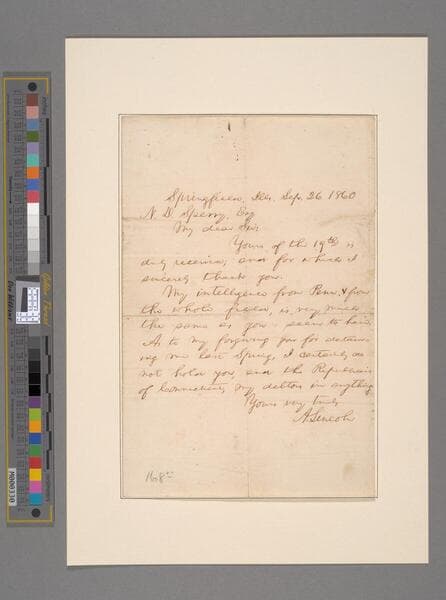 Springfield, Ills. Sep. 26 1860
N. D. Sperry, Esq
My dear Sir.
Yours of the 19th is
duly received, and for which I
sincerely thank you.
My intelligence from Penn. & from
the whole field, is, very much
the same as you seem to have.
As to my forgiving you for detain-
ing me last Spring, I certainly do
not hold you, and the Republicans
of Connecticut, my debtors in anything
Yours very truly
A. Lincoln